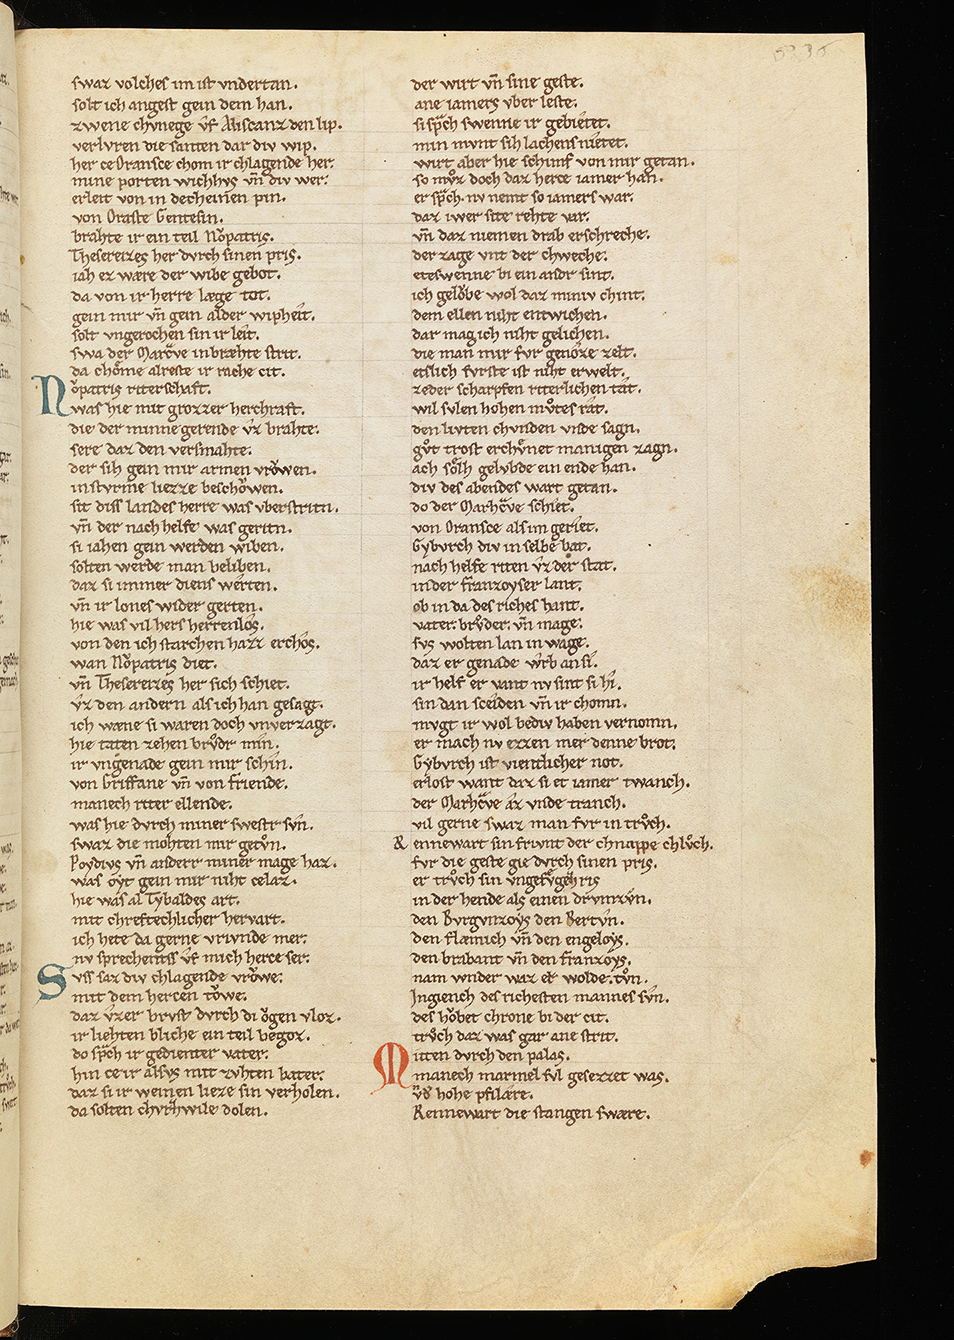 swaz volches im ist vndertan.
solt ich angest gein dem han.
zwene chvnege vf Aliscanz den lip.
verlvren die santen dar div wip.
her ce Oransce chom ir chlagende her.
mine porten wichhvs vn̄ div wer.
erleit von in decheinen pin.
von Oraste Gentesin.
brahte ir ein teil Nöpatris.
Thesereizes her dvrch sinen pris.
iah ez wære der wibe gebot.
da von ir herre læge tot.
gein mir vn̄ gein alder wipheit.
solt vngerochen sin ir leit.
swa der Marcͧve inbræhte strit.
da chöme alreste ir rache cit.
Nöpatris riterschaft.
was hie mit grozzer herchraft.
die der minne gerende vz brahte.
sere daz den versmahte.
der sih gein mir armen vröwen.
in stvrme liezze beschöwen.
sit diss landes herre was vberstritn.
vn̄ der nach helfe was geritn.
si iahen gein werden wiben.
solten werde man beliben.
daz si immer diens werten.
vn̄ ir lones wider gerten.
hie was vil hers herrenlos.
von den ich starchen hazz erchos.
wan Nöpatris diet.
vn̄ Thesereizes her sich schiet.
vz den andern als ich han gesagt.
ich wæne si waren doch vnverzagt.
hie taten zehen brvͦdr min.
ir vngenade gein mir schin.
von Griffane vn̄ von friende.
manech riter ellende.
was hie dvrch miner swestr svn.
swaz die mohten mir getvn.
Poydivs vn̄ anderr miner mage haz.
was oyt gein mir niht celaz.
hie was al Tybaldes art.
mit chreftechlicher hervart.
ich hete da gerne vrivnde mer.
nv sprechentss vf mich herce ser.
Svss saz div chlagende vröwe.
mit dem hercen töwe.
daz vzer brvst dvrch di ögen vloz.
ir liehten bliche ein teil begoz.
do sp̄ch ir gedienter vater.
hin ce ir alsvs mit zvhten bater.
daz si ir weinen lieze sin verholen.
da solten chvrzwile dolen.
der wirt vn̄ sine geste.
ane iamers vber leste.
si sp̄ch swenne ir gebietet.
min mvnt sih lachens nietet.
wirt aber hie schimf von mir getan.
so mvͦz doch daz herce iamer han.
er sp̄ch. nv nemt so iamers war.
daz iwer site rehte var.
vn̄ daz niemen drab erschreche.
der zage vnt der chweche.
eteswenne bi ein andr sint.
ich gelöbe wol daz miniv chint.
dem ellen niht entwichen.
dar mag ich niht gelichen.
die man mir fvr genoze zelt.
etslich fvrste ist niht erwelt.
zeder scharpfen riterlichen tat.
wil svlen hohen mvͦtes rat.
den livten chvnden vnde sagn.
gvͦt trost erchvͤnet manigen zagn.
ach sölh gelvbde ein ende han.
div des abendes wart getan.
do der Marhcͧve schiet.
von Oransce als im geriet.
Gybvrch div in selbe bat.
nach helfe riten vz der stat.
in der franzoyser lant.
ob in da des riches hant.
vater. brvͦder. vn̄ mage.
svs wolten lan in wage.
daz er genade wrb an si.
ir helf er vant nv sint si hi.
sin dan sceiden vn̄ ir chomn.
mvgt ir wol bediv haben vernomn.
er mach nv ezzen mer denne brot.
Gybvrch ist vientlicher not.
erlost want daz si et iamer twanch.
der Marhcͧve az vnde tranch.
vil gerne swaz man fvr in trvͦch.
Rennewart sin frivnt der chnappe chlvͦch.
fvr die geste gie dvrch sinen pris.
er trvͦch sin vngefvͤgez ris
in der hende als einen drvmzvn.
den Bvrgvnzoys den Bertvn.
den flæmich vn̄ den engeloys.
den brabant vn̄ den franzoys.
nam wnder waz er wolde. tvͦn.
Ingiench des richesten mannes svn.
des höbet chrone bi der cit.
trvͦch daz was gar ane strit.
Mitten dvrch den palas.
manech marmel svl gesezzet was.
vn̄d hohe pfilære.
Rennewart die stangen swære.